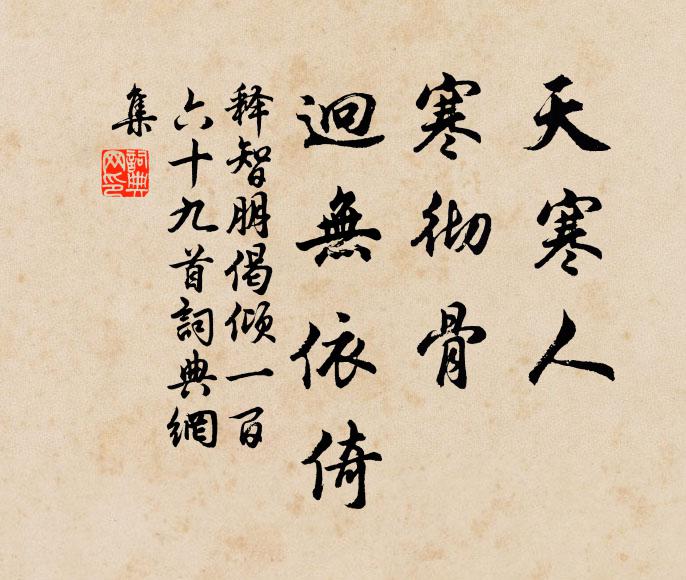 天寒人
寒彻骨
迥無依倚
释智朋偈倾一百
六十九首詞典網
集
詞典
网印